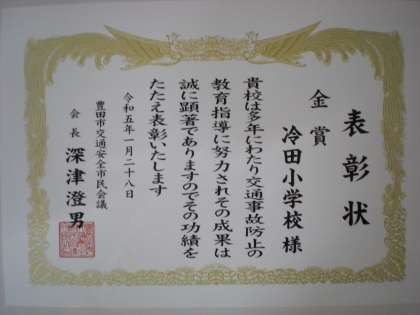 表彰状
金賞
冷田小学校様
貴校は多年にわたり交通事故防止の
教育指導に努力されその成果は
誠に顕著でありますのでその功績を
たたえ表彰いたします
令和五年一月二十八日
豊田市交通安全市民会議
会長 深津澄男